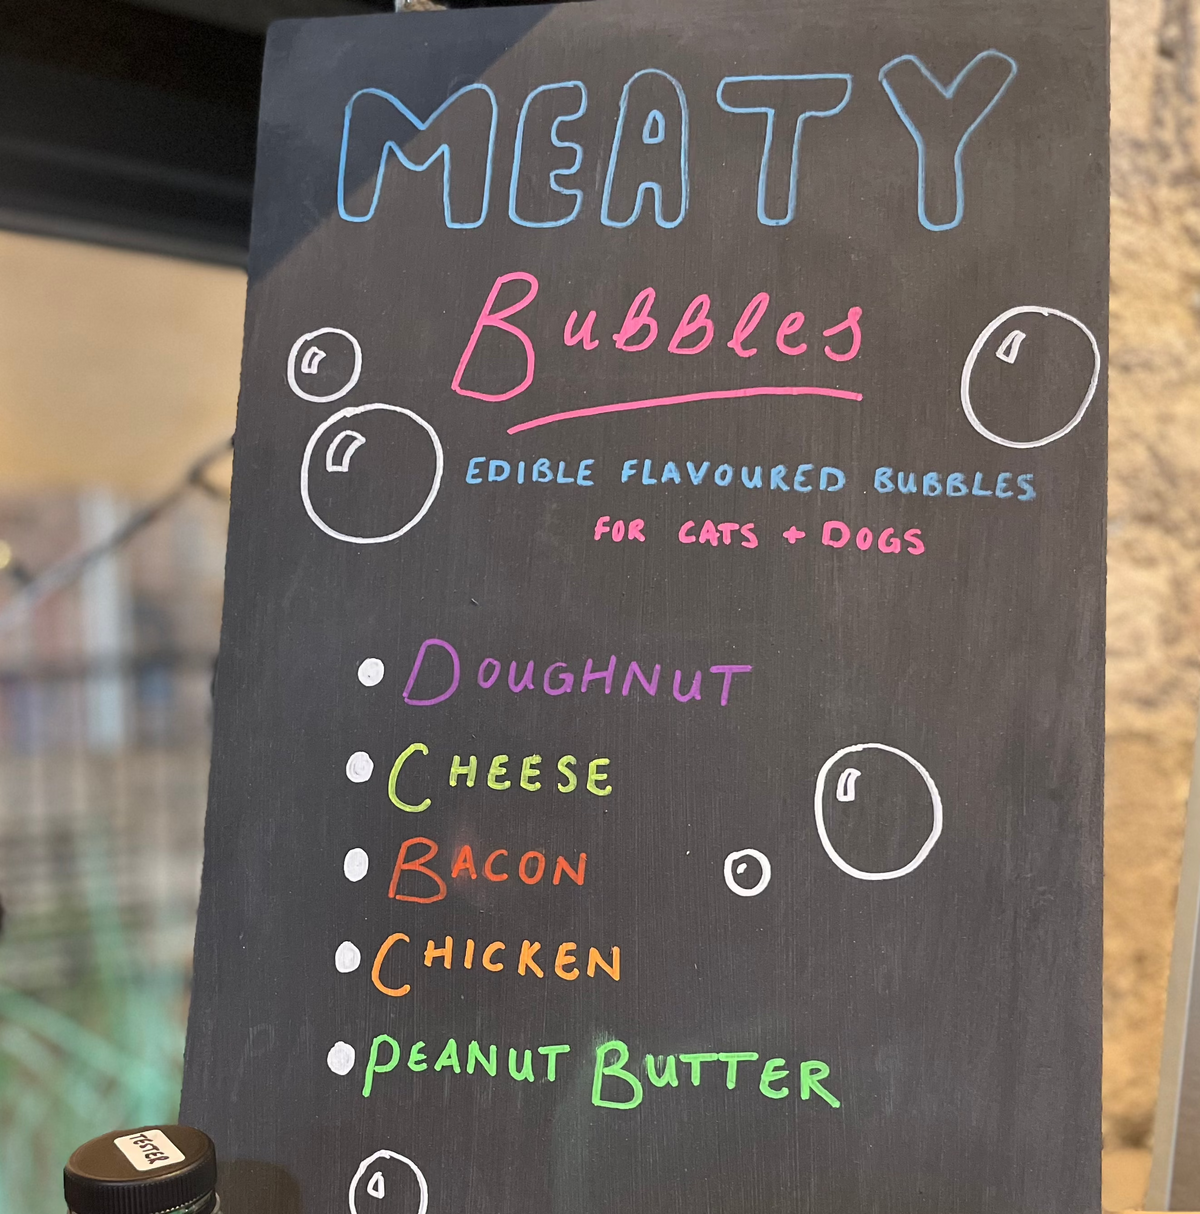 MEATY
BUBBLES
EDIBLE FLAVOURED BUBBLES
FOR CATS + DOGS
• DOUGHNUT
• CHEESE
• BACON
• CHICKEN
• PEANUT BUTTER
TESTER